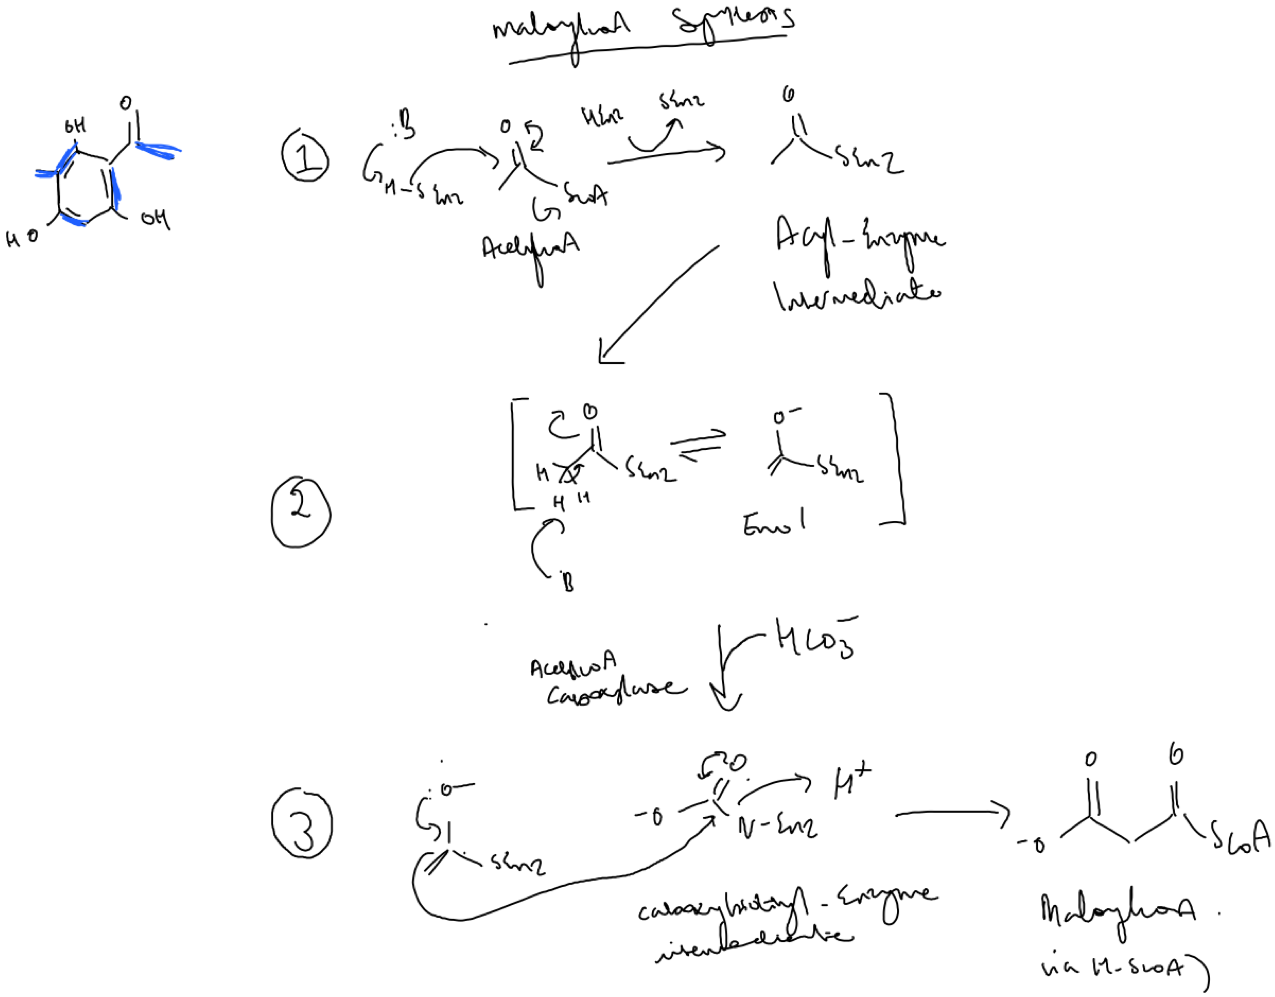 MalonylCoA Synthesis
O
OH
HO
OH
1
:B
H-SEnz
O
SCoA
AcetylCoA
HEnz
SEnz
O
SEnz
Acyl-Enzyme
Intermediate
2
O
H
H H
SEnz
:B
O-
SEnz
Enol
AcetylCoA
Carboxylase
HCO3-
3
:O-
SEnz
-O
O
N-Enz
H+
carboxybiotinyl-Enzyme
intermediate
O
O
-O
SCoA
MalonylCoA.
via H-SCoA)